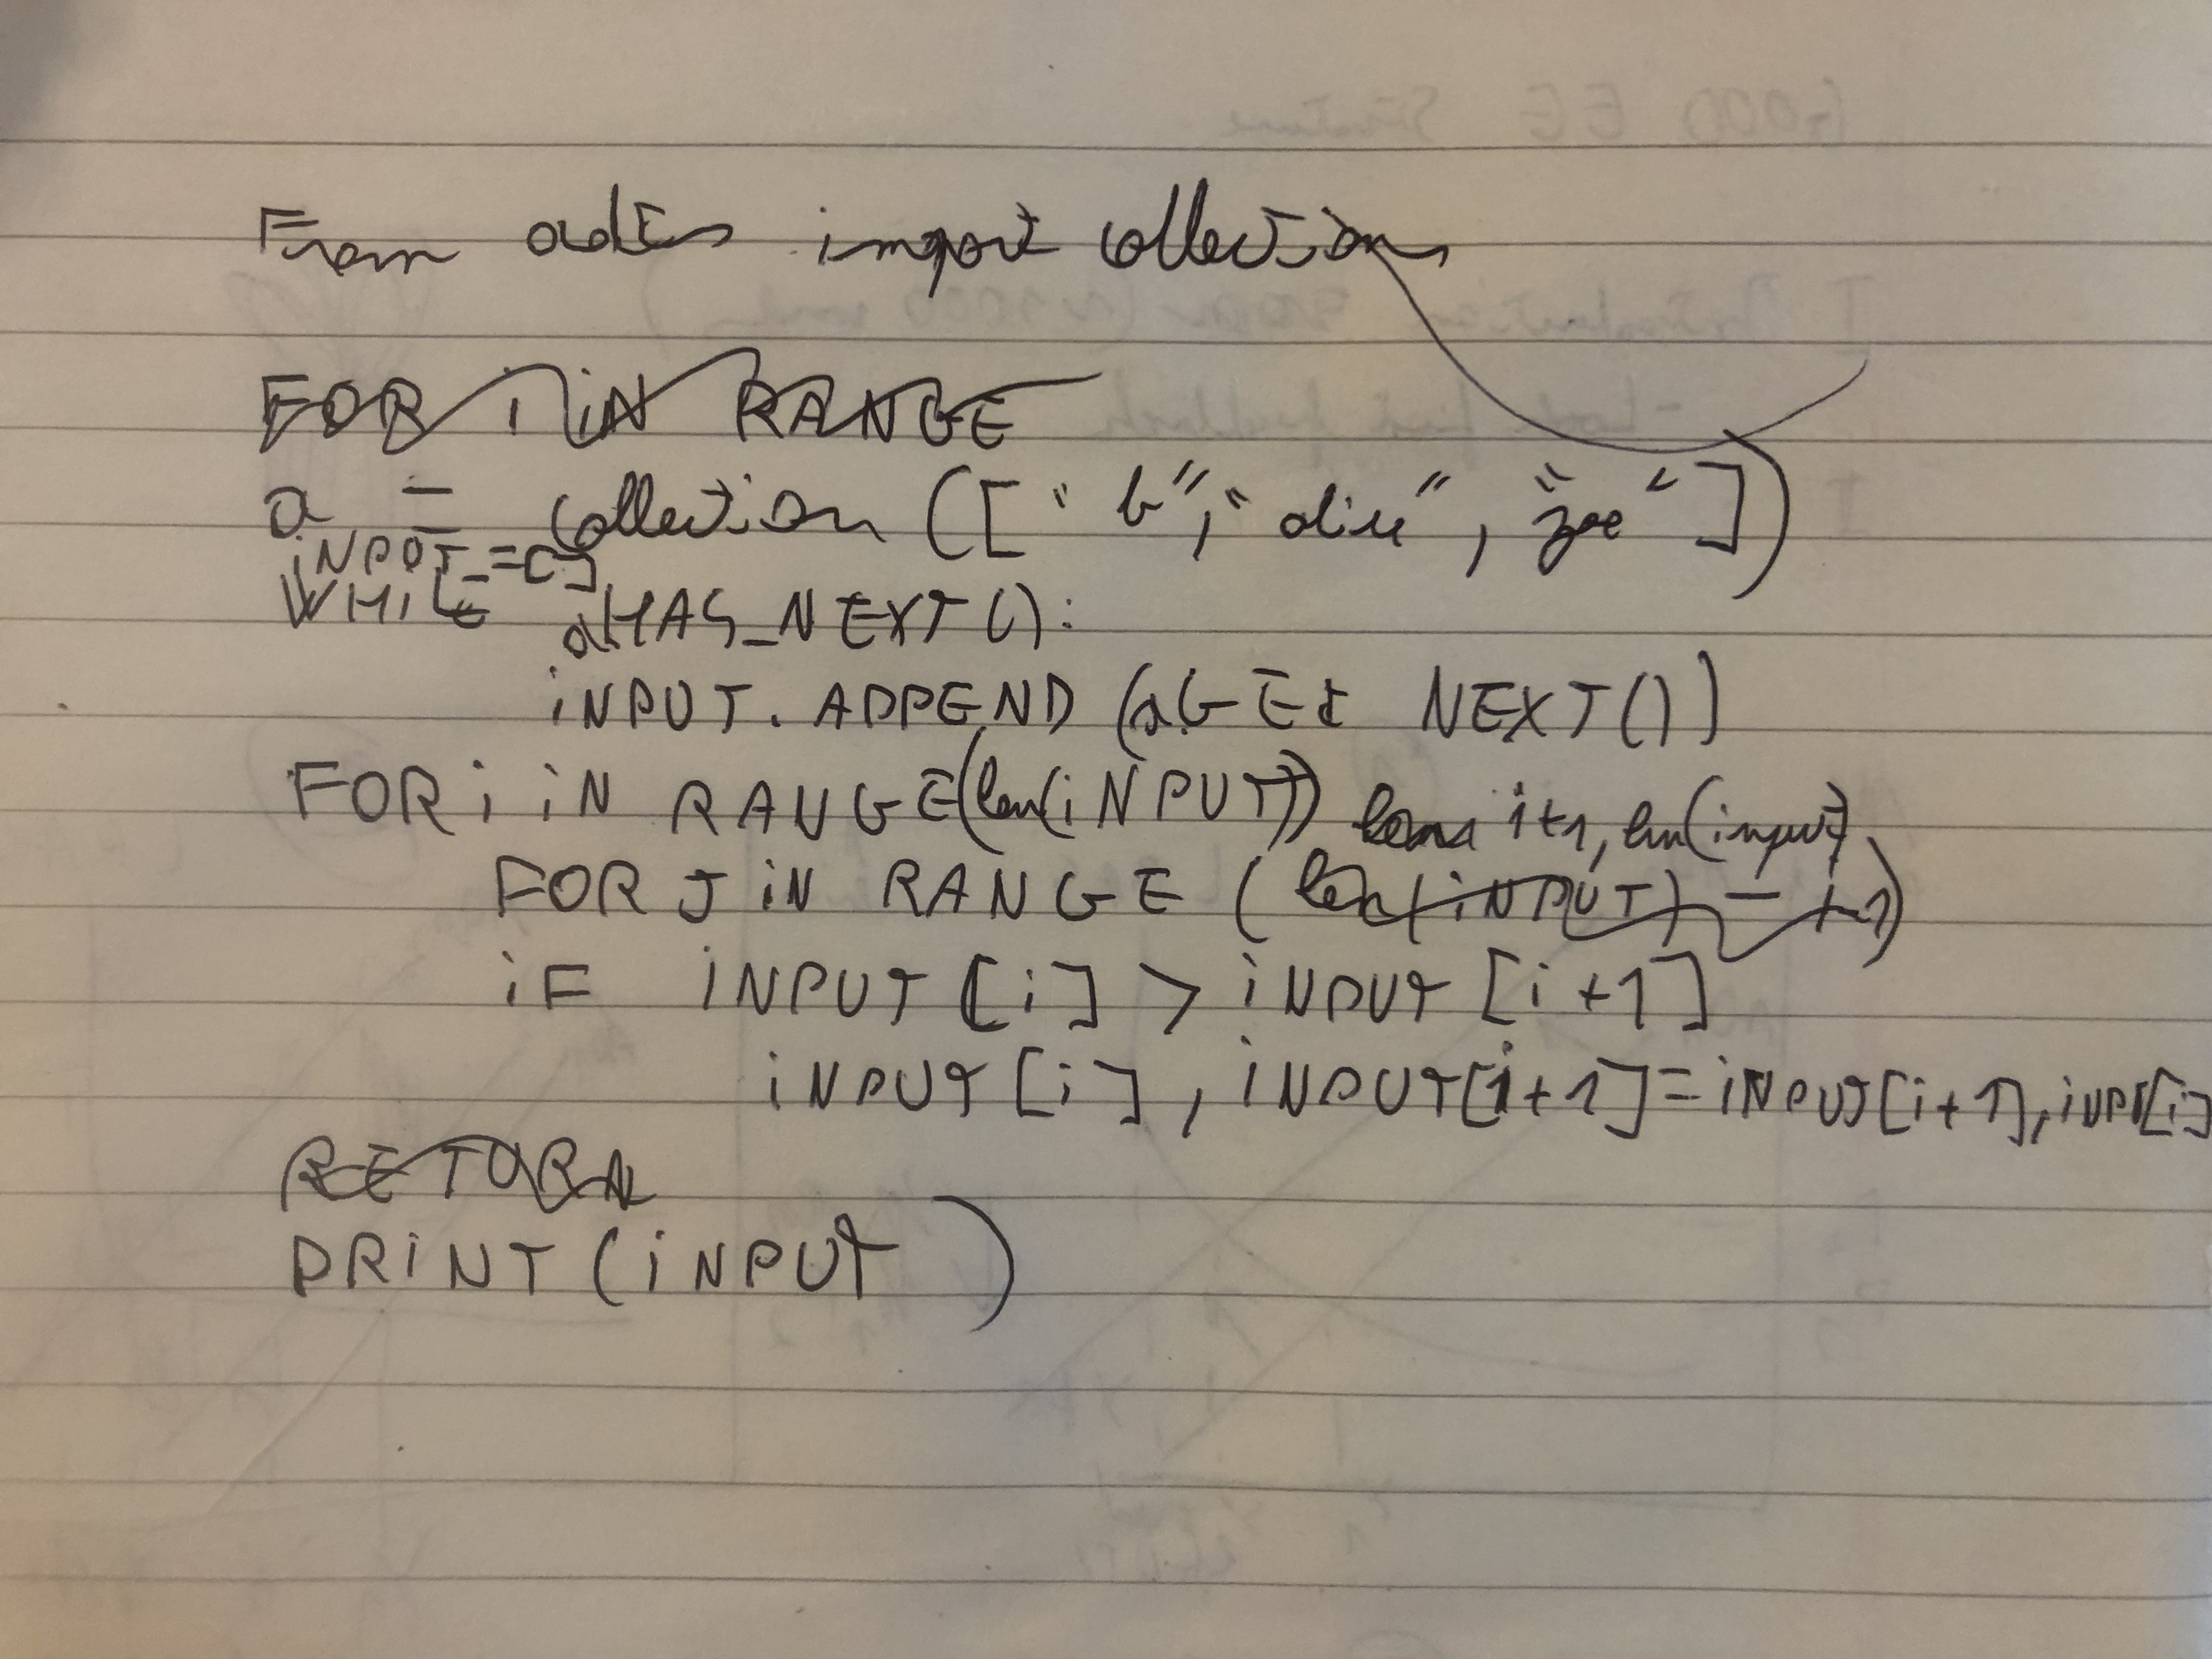 From adts import collection
FOR I IN RANGE
a = collection (["b", "dine", "Zoe"])
INPUT = []
WHILE a.HAS_NEXT():
INPUT.APPEND (a.GET NEXT())
FOR i iN RANGE(len(iNPUT))
i+1, len(input)
FOR J iN RANGE (len(iNPUT)
iF iNPUT [i] > iNPUT [i+1]
iNPUT [i], iNPUT[i+1] = iNPUT[i+1], iNPUT[i]
RETURN
PRiNT (iNPUT)